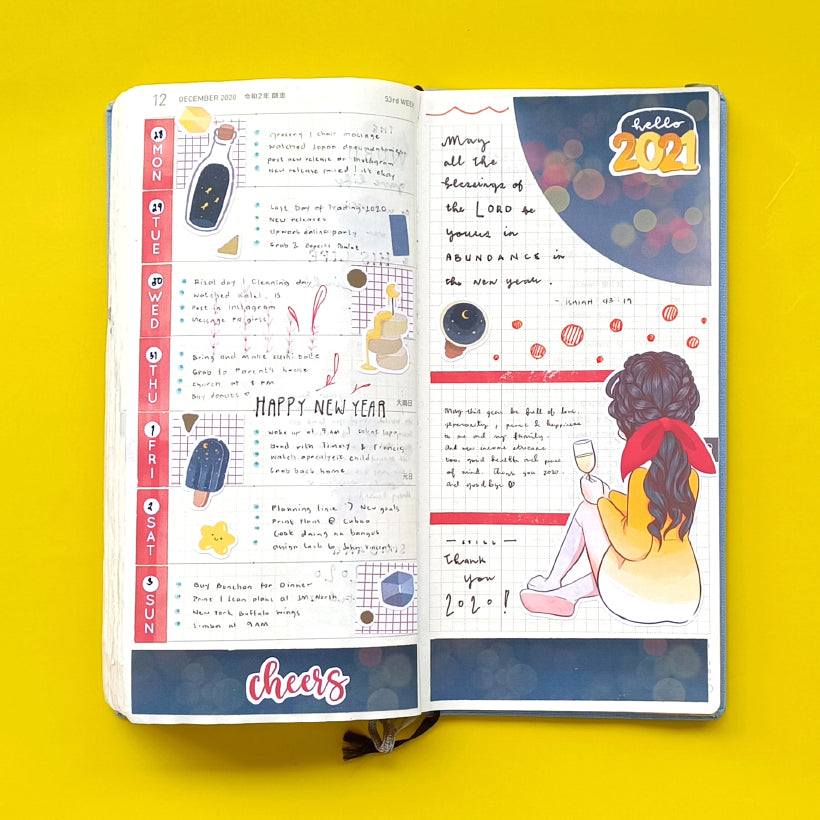 12 DECEMBER 2020 令和2年 師走 53rd WEEK
28 MON
Grocery | Chair massage
Watched Japan
post new release on Instagram
New release failed | it's okay
29 TUE
Last Day of Trading 2020
New releases
Upwork online party
Grab & Depeis Balat
30 WED
Rizal day | Cleaning day
Watched
Post in Instagram
Message
31 THU
Bring and make sushi bake
Grab to Parent's house
Church at 8 PM
Buy donuts
大晦日
HAPPY NEW YEAR
1 FRI
Wake up at 9 AM |
Bond with Timmy & Francis
Watch apocalyptic child
Grab back home
元日
2 SAT
Planning time New goals
Print Plans @ Cubao
Cook daing na bangus
Assign task to John Vincent
3 SUN
Buy Bonchon for Dinner
Print | Scan plans at SM North
New York Buffalo wings
Simba at 9 AM
cheers
hello
2021
May
all the
blessings of
the LORD be
yours in
ABUNDANCE in
the new year.
- ISAIAH 43:19
May this year be full of love,
prosperity, peace & happiness
to me and my family.
And new income streams
too. good health and peace
of mind. Thank you 2020.
and goodbye
— STILL —
Thank
you
2020!